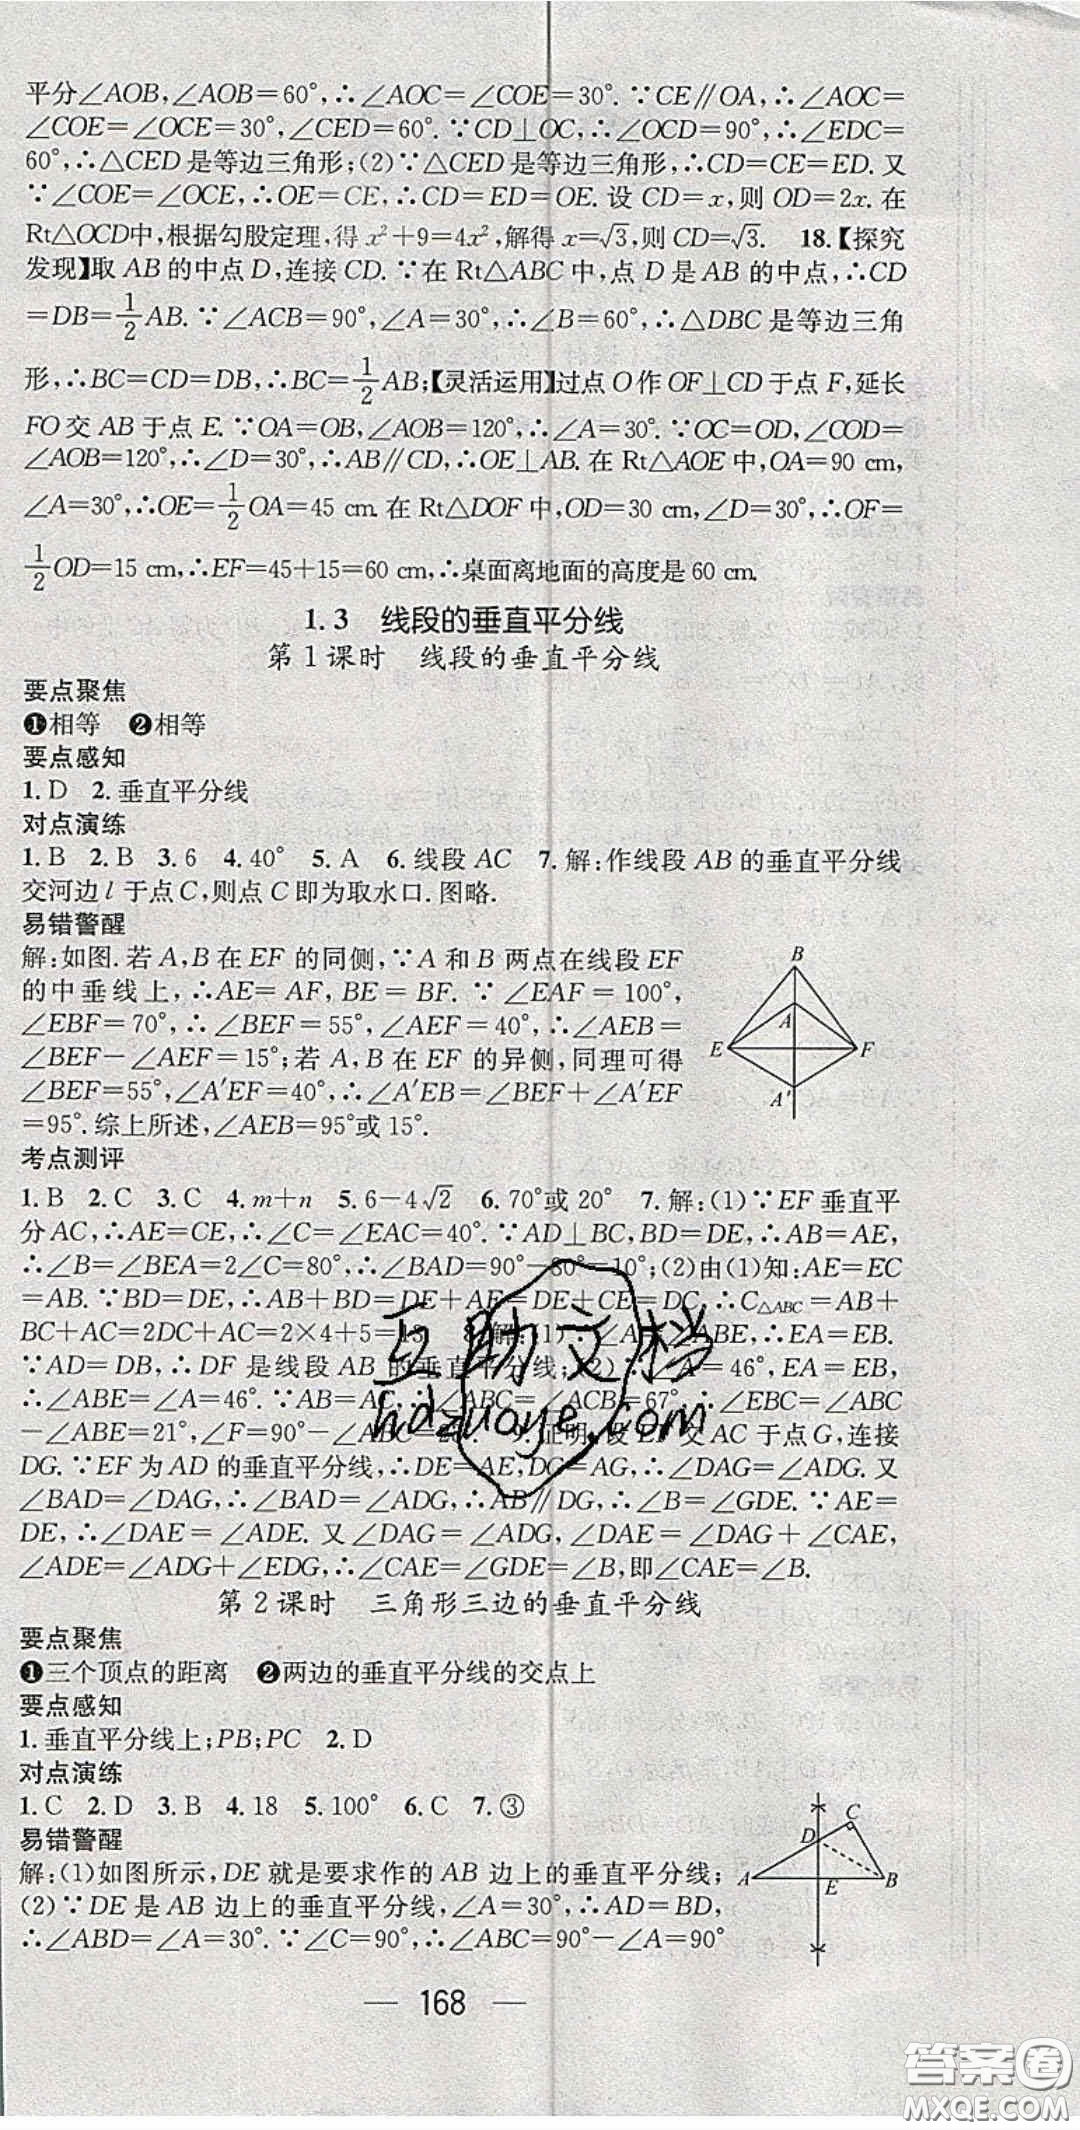 平分∠AOB,∠AOB=60°,∴∠AOC=∠COE=30°.∵CE∥OA,∴∠AOC=
∠COE=∠OCE=30°,∠CED=60°.∵CD⊥OC,∴∠OCD=90°,∴∠EDC=
60°,∴△CED是等边三角形;(2)∵△CED是等边三角形,∴CD=CE=ED.又
∵∠COE=∠OCE,∴OE=CE,∴CD=ED=OE.设CD=x,则OD=2x.在
Rt△OCD中,根据勾股定理,得x²+9=4x²,解得x=√3,则CD=√3. 18.【探究
发现】取AB的中点D,连接CD.∵在Rt△ABC中,点D是AB的中点,∴CD
=DB=1/2AB.∵∠ACB=90°,∠A=30°,∴∠B=60°,∴△DBC是等边三角
形,∴BC=CD=DB,∴BC=1/2AB;【灵活运用】过点O作OF⊥CD于点F,延长
FO交AB于点E.∵OA=OB,∠AOB=120°,∴∠A=30°.∵OC=OD,∠COD=
∠AOB=120°,∴∠D=30°,∴AB∥CD,∴OE⊥AB.在Rt△AOE中,OA=90 cm,
∠A=30°,∴OE=1/2OA=45 cm.在Rt△DOF中,OD=30 cm,∠D=30°,∴OF=
1/2OD=15 cm,∴EF=45+15=60 cm,∴桌面离地面的高度是60 cm.
1.3 线段的垂直平分线
第1课时 线段的垂直平分线
要点聚焦
❶相等 ❷相等
要点感知
1.D 2.垂直平分线
对点演练
1.B 2.B 3.6 4.40° 5.A 6.线段AC 7.解:作线段AB的垂直平分线
交河边l于点C,则点C即为取水口.图略.
易错警醒
解:如图.若A,B在EF的同侧,∵A和B两点在线段EF
的中垂线上,∴AE=AF,BE=BF.∵∠EAF=100°,
∠EBF=70°,∴∠BEF=55°,∠AEF=40°,∴∠AEB=
∠BEF-∠AEF=15°;若A,B在EF的异侧,同理可得
∠BEF=55°,∠A′EF=40°,∴∠A′EB=∠BEF+∠A′EF
=95°.综上所述,∠AEB=95°或15°.
B
A
E
F
A′
考点测评
1.B 2.C 3.C 4.m+n 5.6-4√2 6.70°或20° 7.解:(1)∵EF垂直平
分AC,∴AE=CE,∴∠C=∠EAC=40°.∵AD⊥BC,BD=DE,∴AB=AE,
∴∠B=∠BEA=2∠C=80°,∴∠BAD=90°-80°=10°;(2)由(1)知:AE=EC
=AB.∵BD=DE,∴AB+BD=DE+AE=DE+CE=DC,∴C△ABC=AB+
BC+AC=2DC+AC=2×4+5=13. 8.解:(1)∵∠A=∠ABE,∴EA=EB.
∵AD=DB,∴DF是线段AB的垂直平分线;(2)∵∠A=46°,EA=EB,
∴∠ABE=∠A=46°.∵AB=AC,∴∠ABC=∠ACB=67°,∴∠EBC=∠ABC
-∠ABE=21°,∠F=90°-∠ABC=2 . 9.证明:设EF交AC于点G,连接
DG.∵EF为AD的垂直平分线,∴DE=AE,DG=AG,∴∠DAG=∠ADG.又
∠BAD=∠DAG,∴∠BAD=∠ADG,∴AB∥DG,∴∠B=∠GDE.∵AE=
DE,∴∠DAE=∠ADE.又∠DAG=∠ADG,∠DAE=∠DAG+∠CAE,
∠ADE=∠ADG+∠EDG,∴∠CAE=∠GDE=∠B,即∠CAE=∠B.
第2课时 三角形三边的垂直平分线
要点聚焦
❶三个顶点的距离 ❷两边的垂直平分线的交点上
要点感知
1.垂直平分线上;PB;PC 2.D
对点演练
1.C 2.D 3.B 4.18 5.100° 6.C 7.③
易错警醒
解:(1)如图所示,DE就是要求作的AB边上的垂直平分线;
(2)∵DE是AB边上的垂直平分线,∠A=30°,∴AD=BD,
∴∠ABD=∠A=30°.∵∠C=90°,∴∠ABC=90°-∠A=90°
C
D
A
E
B
— 168 —
互助文档
hdzuoye.com
答案圈
MXQE.COM